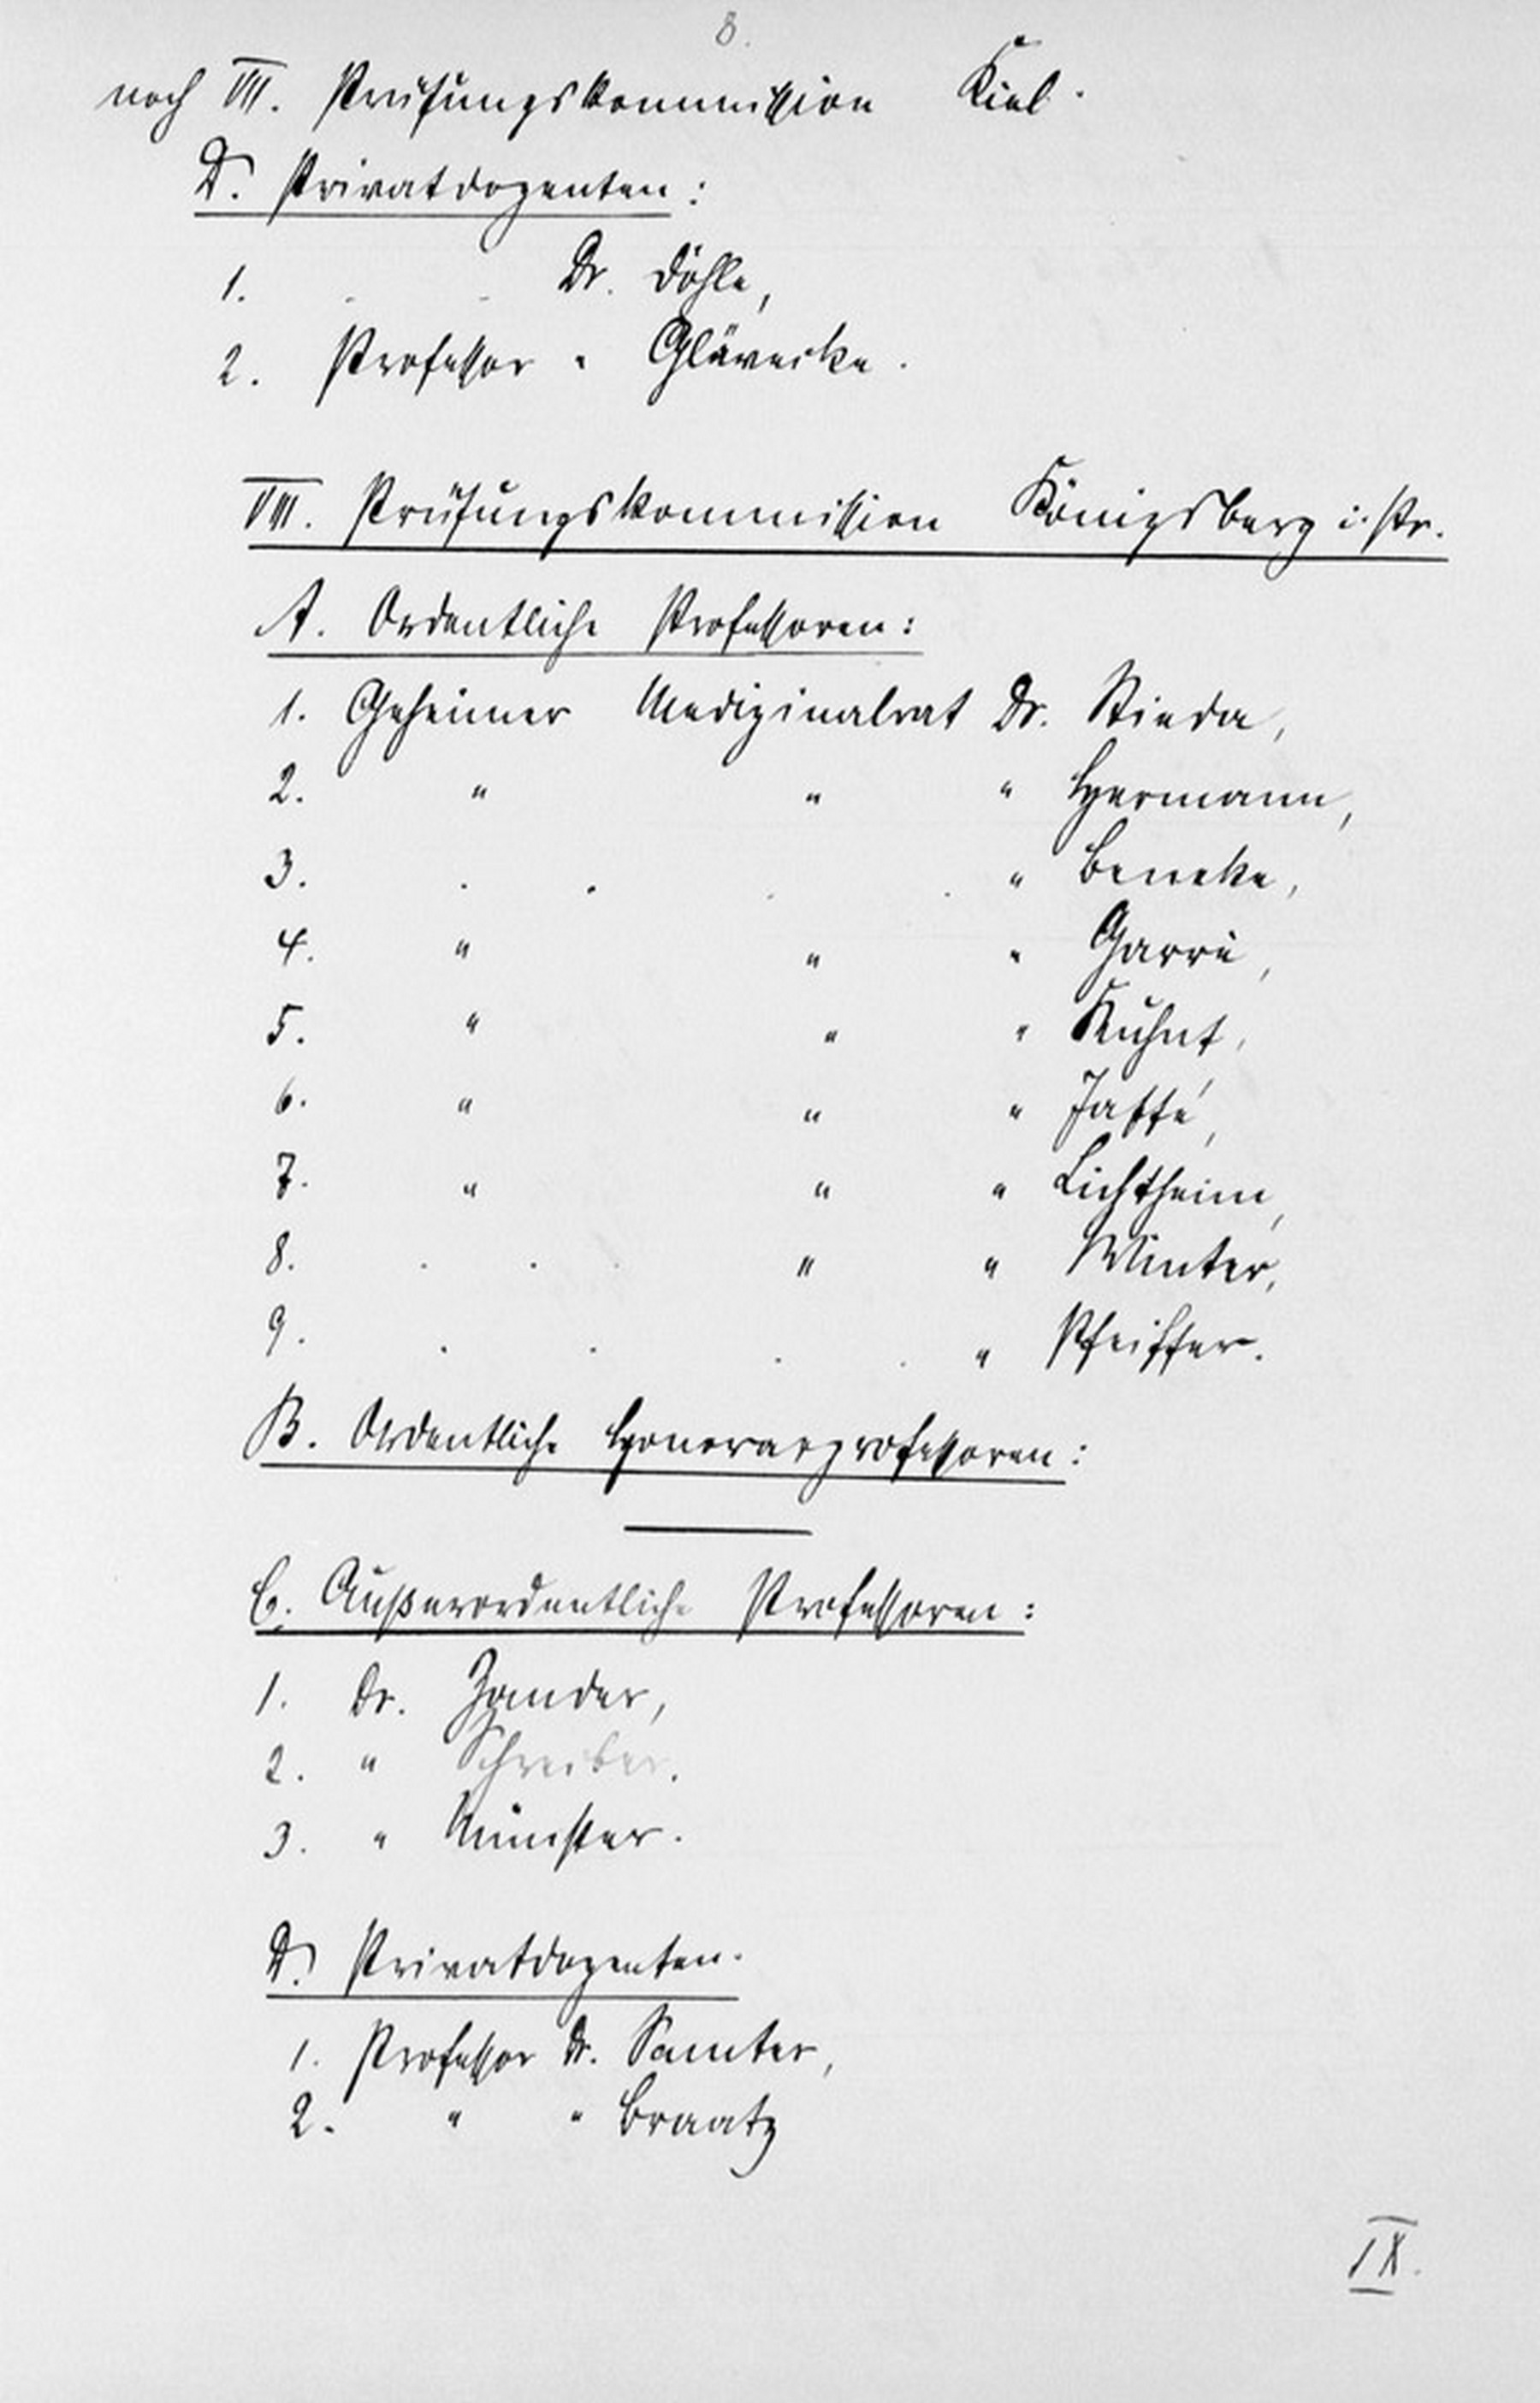 8.
noch VII. Prüfungskommission Kiel.
D. Privatdozenten:
1. Dr. Döhle,
2. Professor " Glävecke.
VIII. Prüfungskommission Königsberg i. Pr.
A. Ordentliche Professoren:
1. Geheimer Medizinalrat Dr. Stieda,
2. " " " Hermann,
3. . . . . " Beneke,
4. " " " Garrè,
5. " " " Kuhnt,
6. " " " Jaffé,
7. " " " Lichtheim,
8. . . . " " Winter,
9. . . . . " Pfeiffer.
B. Ordentliche Honorarprofessoren:
C. Außerordentliche Professoren:
1. Dr. Zander,
2. " Schreiber.
3. " Münster.
D. Privatdozenten.
1. Professor Dr. Samter,
2. " " Braatz
IX.